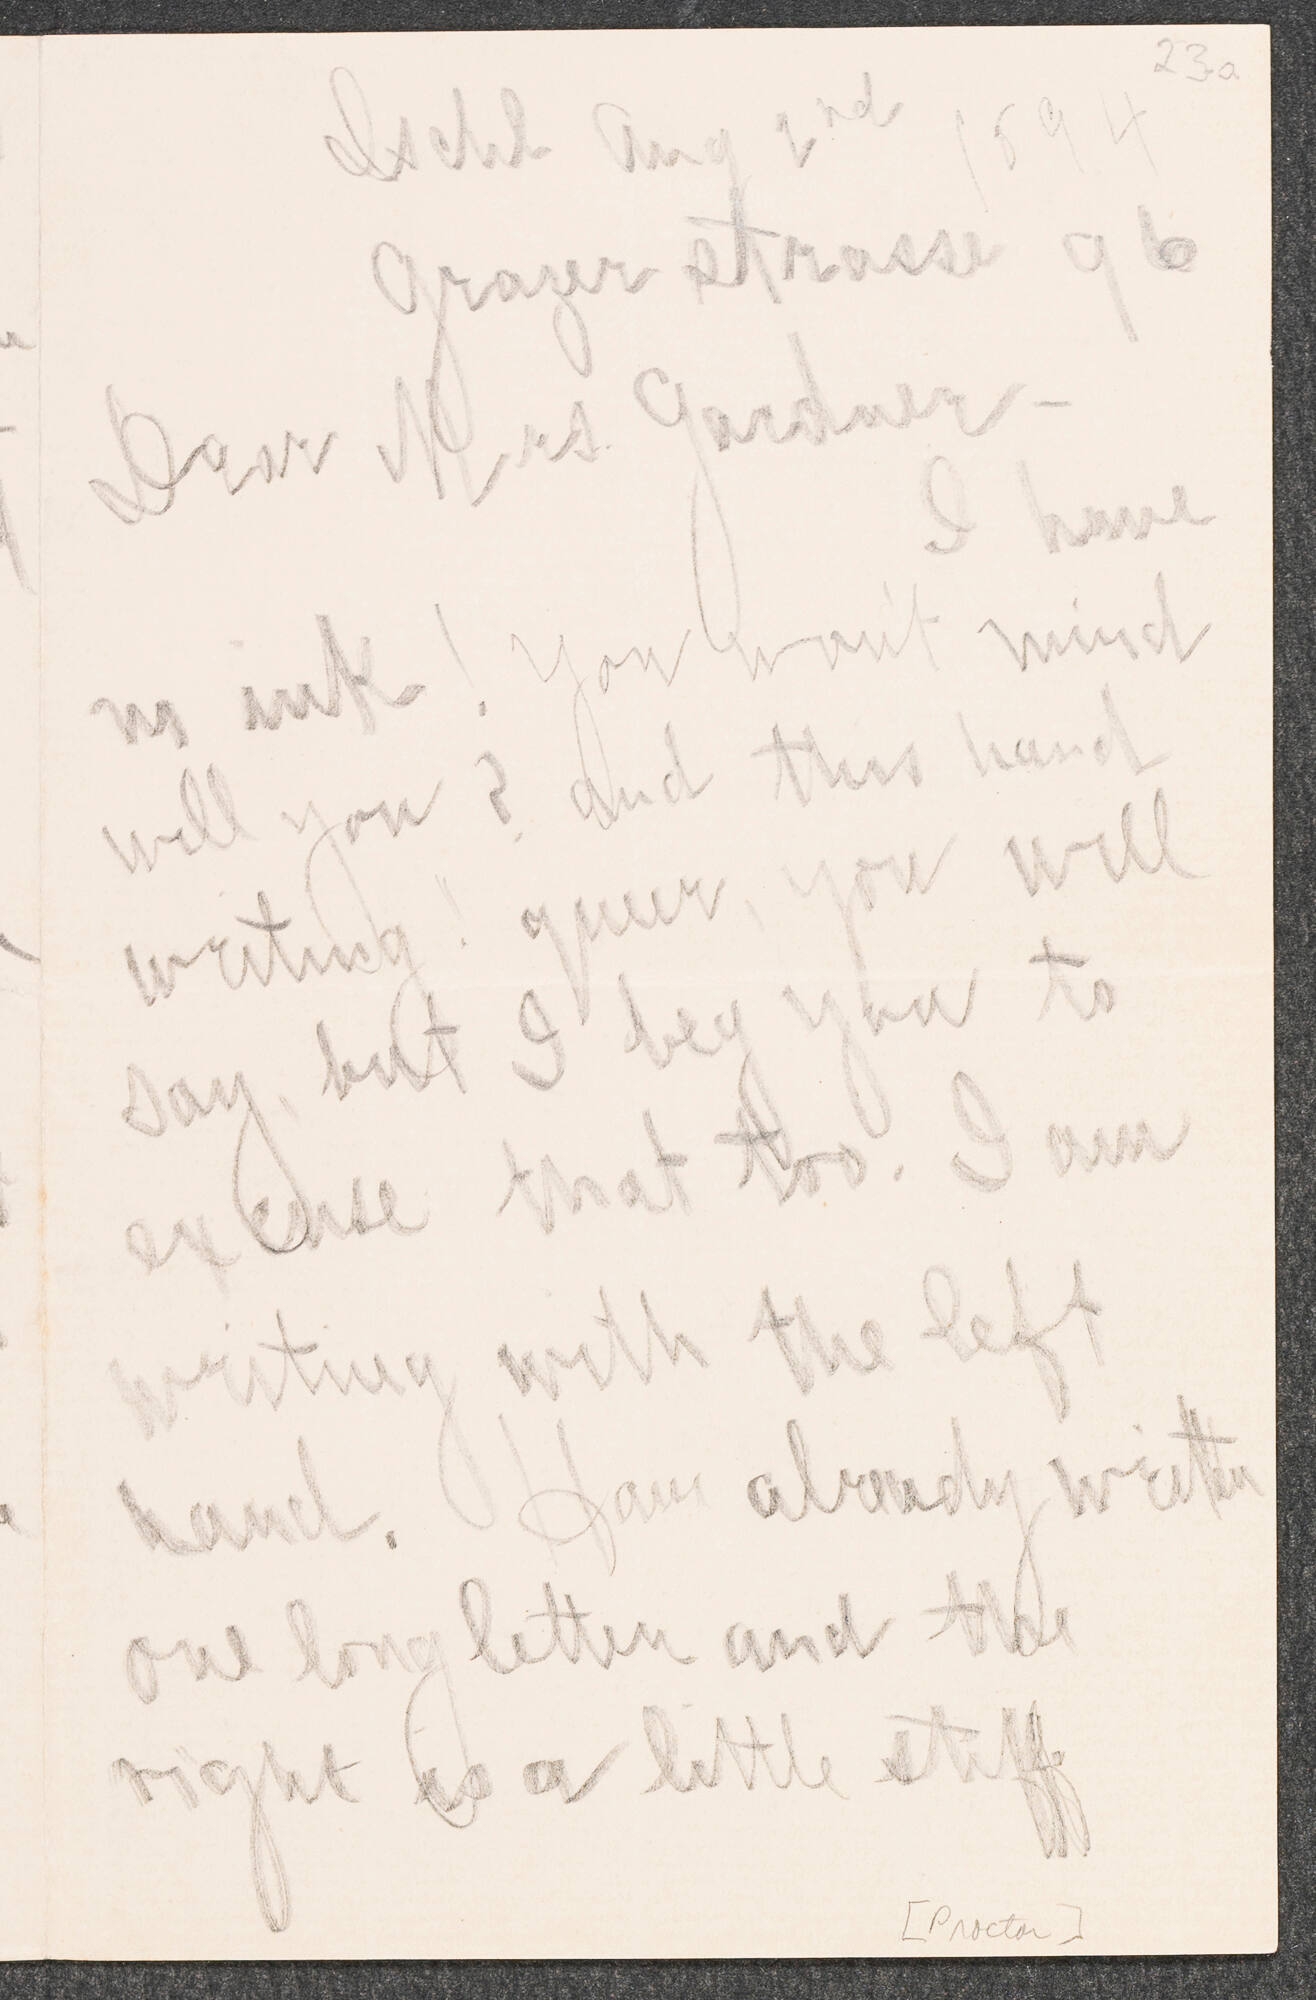 23a
Ischl Aug 2nd 1894
Grazer strasse 96
Dear Mrs. Gardner -
I have
no ink! You won't mind
will you? And this hand
writing! queer, you will
say, but I beg you to
excuse that too. I am
writing with the left
hand. Have already written
one long letter and the
right is a little stiff
[Proctor]